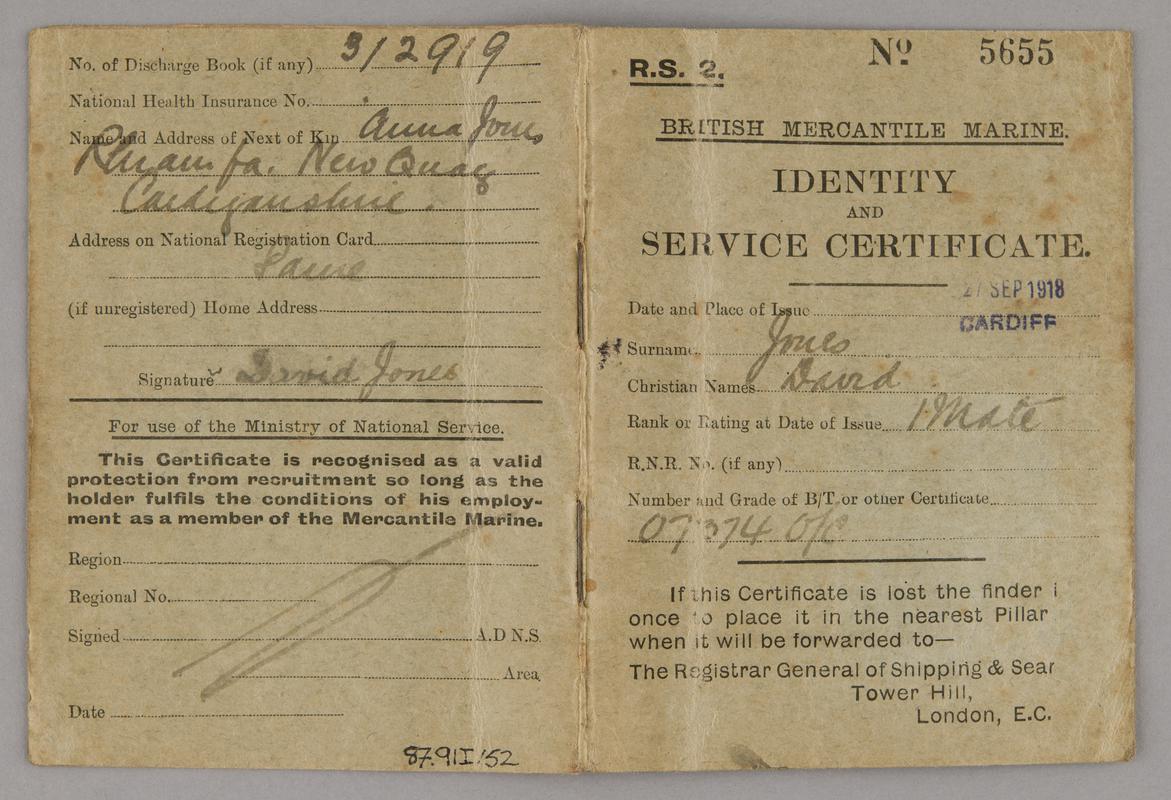 No. of Discharge Book (if any) 312919
National Health Insurance No.
Name and Address of Next of Kin Anna Jones
New Quay
Cardiganshire.
Address on National Registration Card
Same
(if unregistered) Home Address
Signature David Jones
For use of the Ministry of National Service.
This Certificate is recognised as a valid
protection from recruitment so long as the
holder fulfils the conditions of his employ-
ment as a member of the Mercantile Marine.
Region
Regional No.
Signed A.D N.S.
Area
Date
87.91I/52
R.S. 2.
No. 5655
BRITISH MERCANTILE MARINE.
IDENTITY
AND
SERVICE CERTIFICATE.
27 SEP 1918
Date and Place of Issue
CARDIFF
Surname Jones
Christian Names David
Rank or Rating at Date of Issue 1 Mate
R.N.R. No. (if any)
Number and Grade of B/T or other Certificate
If this Certificate is lost the finder i
once to place it in the nearest Pillar
when it will be forwarded to—
The Registrar General of Shipping & Sear
Tower Hill,
London, E.C.